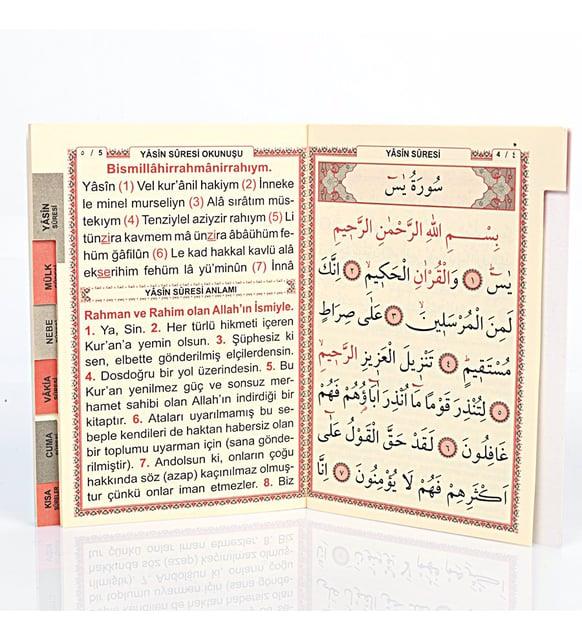 ٥ / 5 YÂSİN SÛRESİ OKUNUŞU
Bismillâhirrahmânirrahıym.
Yâsîn (1) Vel kur’ânil hakiym (2) İnneke
le minel murseliyn (3) Alâ sıratım müs-
tekıym (4) Tenziylel aziyzir rahıym (5) Li
tünzira kavmem mâ ünzira âbâühüm fe-
hüm ğâfilûn (6) Le kad hakkal kavlü alâ
ekserihim fehüm lâ yü’minûn (7) İnnâ
YÂSİN SÛRESİ ANLAMI
Rahman ve Rahim olan Allah’ın İsmiyle.
1. Ya, Sin. 2. Her türlü hikmeti içeren
Kur’an’a yemin olsun. 3. Şüphesiz ki
sen, elbette gönderilmiş elçilerdensin.
4. Dosdoğru bir yol üzerindesin. 5. Bu
Kur’an yenilmez güç ve sonsuz mer-
hamet sahibi olan Allah’ın indirdiği bir
kitaptır. 6. Ataları uyarılmamış bu se-
beple kendileri de haktan habersiz olan
bir toplumu uyarman için (sana gönde-
rilmiştir). 7. Andolsun ki, onların çoğu
hakkında söz (azap) kaçınılmaz olmuş-
tur çünkü onlar iman etmezler. 8. Biz
YÂSİN SÛRESİ
MÜLK
NEBE
VÂKIA
CUMA
KISA
YÂSİN SÛRESİ 4 / ٤
سُورَةُ يٰسٓ
بِسْمِ اللّٰهِ الرَّحْمٰنِ الرَّحِيمِ
يٰسٓ ﴿١﴾ وَالْقُرْاٰنِ الْحَكِيمِ ﴿٢﴾ اِنَّكَ
لَمِنَ الْمُرْسَلِينَ ﴿٣﴾ عَلٰى صِرَاطٍ
مُسْتَقِيمٍ ﴿٤﴾ تَنْزِيلَ الْعَزِيزِ الرَّحِيمِ
﴿٥﴾ لِتُنْذِرَ قَوْمًا مَٓا اُنْذِرَ اٰبَٓاؤُ۬هُمْ فَهُمْ
غَافِلُونَ ﴿٦﴾ لَقَدْ حَقَّ الْقَوْلُ عَلٰٓى
اَكْثَرِهِمْ فَهُمْ لَا يُؤْمِنُونَ ﴿٧﴾ اِنَّا